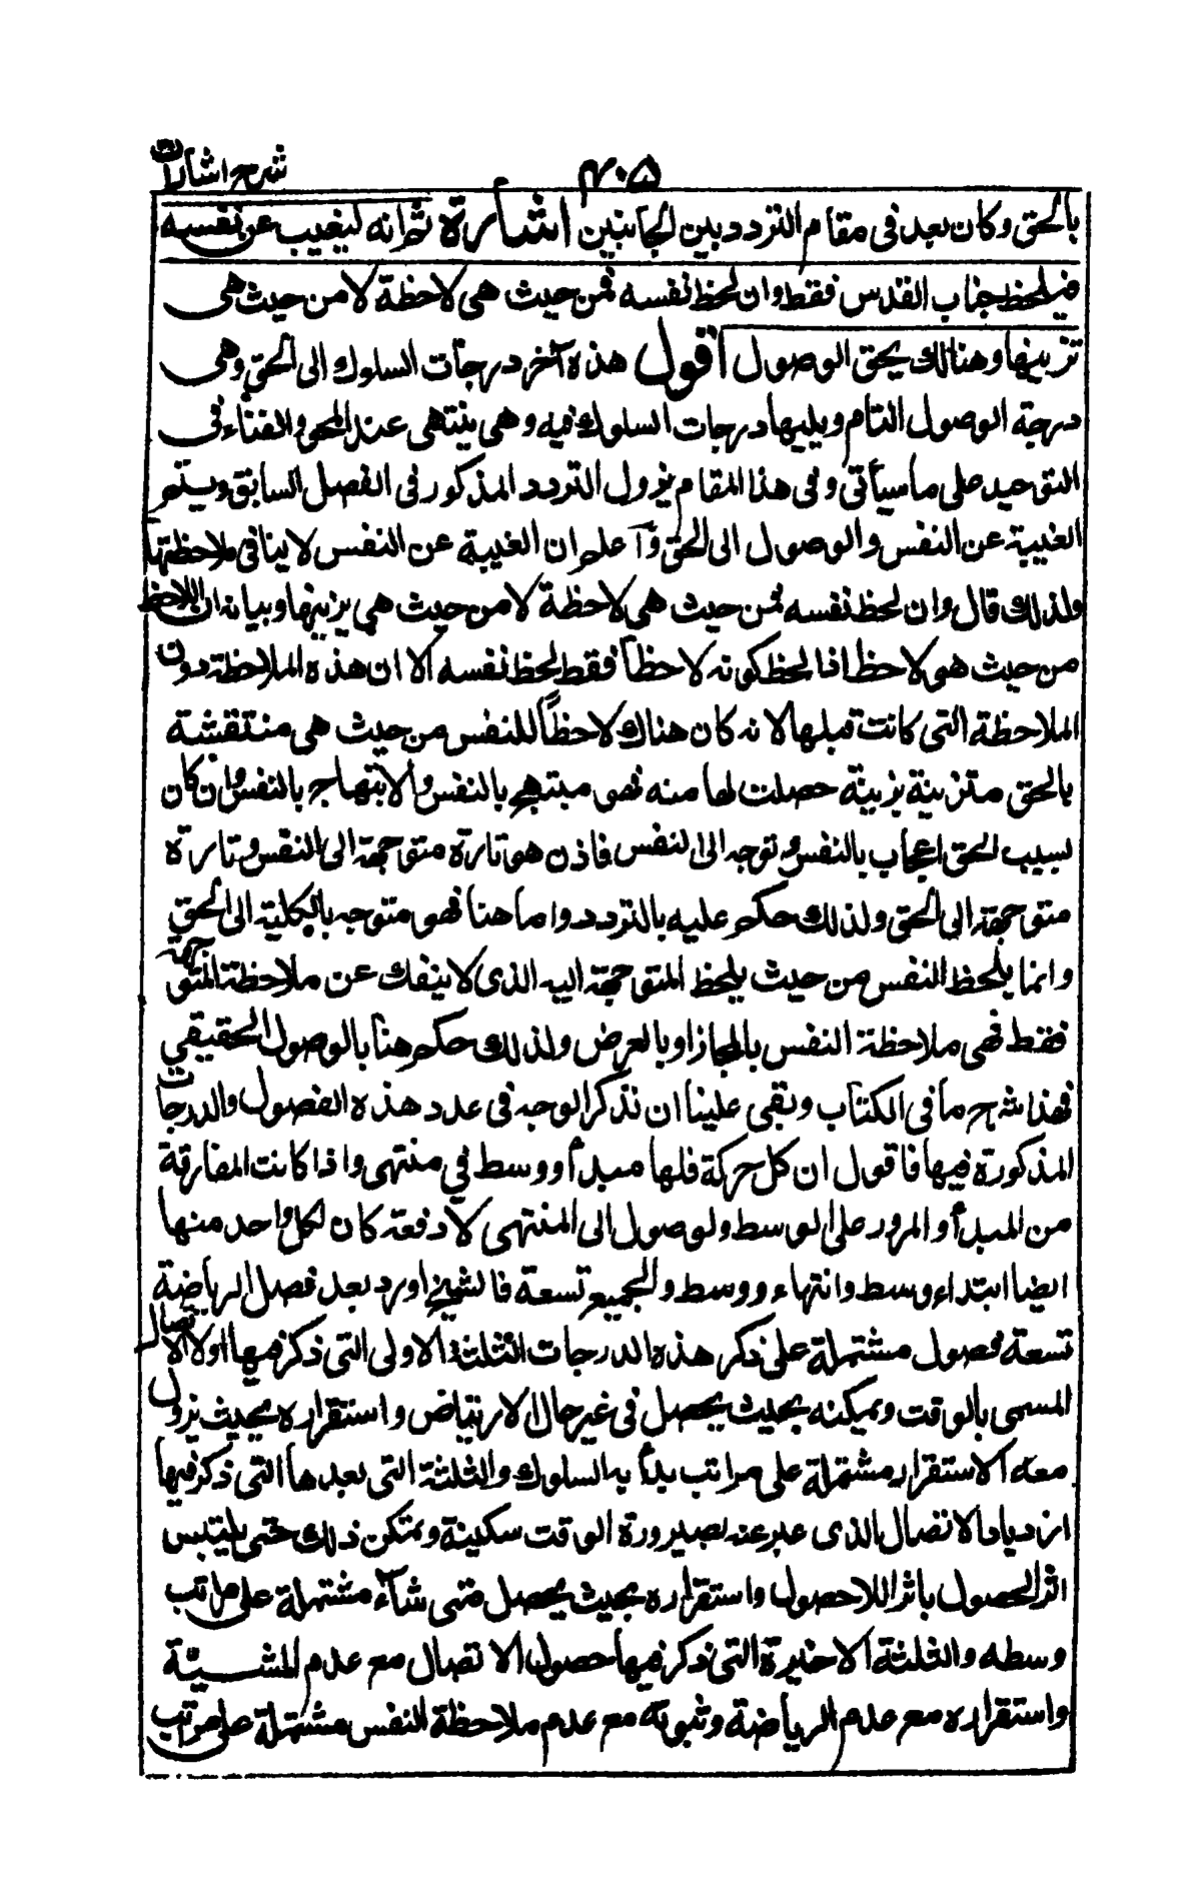 شرح اشارات
۴۰۵
بالحق وكان بعد فى مقام التردد بين الجانبين اشارة ثم انه ليغيب عن نفسه
فيلحظ جناب القدس فقط وان لحظ نفسه فمن حيث هى لاحظة لا من حيث هى
بزينتها وهناك يحق الوصول اقول هذه آخر درجات السلوك الى الحق وهى
درجة الوصول التام ويليها درجات السلوك فيه وهى ينتهى عند المحو والفناء فى
التوحيد على ما سيأتى وفى هذا المقام يزول التردد المذكور فى الفصل السابق ويستمر
الغيبة عن النفس والوصول الى الحق وآعلم ان الغيبة عن النفس لا ينافى ملاحظتها
ولذلك قال وان لحظ نفسه فمن حيث هى لاحظة لا من حيث هى بزينتها وبيانه ان اللاحظ
من حيث هو لاحظ اذا لحظ كونه لاحظاً فقط لحظ نفسه الا ان هذه الملاحظة دون
الملاحظة التى كانت قبلها لانه كان هناك لاحظاً للنفس من حيث هى منتقشة
بالحق متزينة بزينة حصلت لها منه فهو مبتهج بالنفس والابتهاج بالنفس وان كان
بسبب الحق اعجاب بالنفس وتوجه الى النفس فاذن هو تارة متوجهة الى النفس وتارة
متوجهة الى الحق ولذلك حكم عليه بالتردد واما هنا فهو متوجه بالكلية الى الحق
وانما يلحظ النفس من حيث يلحظ المتوجهة اليه الذى لا ينفك عن ملاحظة المتوجهة
فقط فهى ملاحظة النفس بالمجاز او بالعرض ولذلك حكم هنا بالوصول الحقيقي
فهذا شرح ما فى الكتاب وبقى علينا ان نذكر الوجه فى عدد هذه الفصول والدرجات
المذكورة فيها فاقول ان كل حركة فلها مبدأ ووسط في منتهى واذا كانت المفارقة
من المبدأ والمرور على الوسط ولوصول الى المنتهى لا دفعة كان لكل واحد منها
ايضا ابتداء وسط وانتهاء ووسط والجميع تسعة فالشيخ اورد بعد فصل الرياضة
تسعة فصول مشتملة على ذكر هذه الدرجات الثلثة الاولى التى ذكر فيها اولا الاتصال
المسمى بالوقت وتمكنه بحيث يحصل فى غير حال الارتياض واستقراره بحيث يزول
معه الاستقرار مشتملة على مراتب بدأ به السلوك والثلثة التى بعدها التى ذكر فيها
ازدياد الاتصال الذى عبر عنه بصيرورة الوقت سكينة وتمكن ذلك حتى يلتبس
اثر الحصول باثر اللاحصول واستقراره بحيث يحصل متى شاء مشتملة على مراتب
وسطه والثلثة الاخيرة التى ذكر فيها حصول الاتصال مع عدم المشيّة
واستقراره مع عدم الرياضة وثبوته مع عدم ملاحظة النفس مشتملة على مراتب